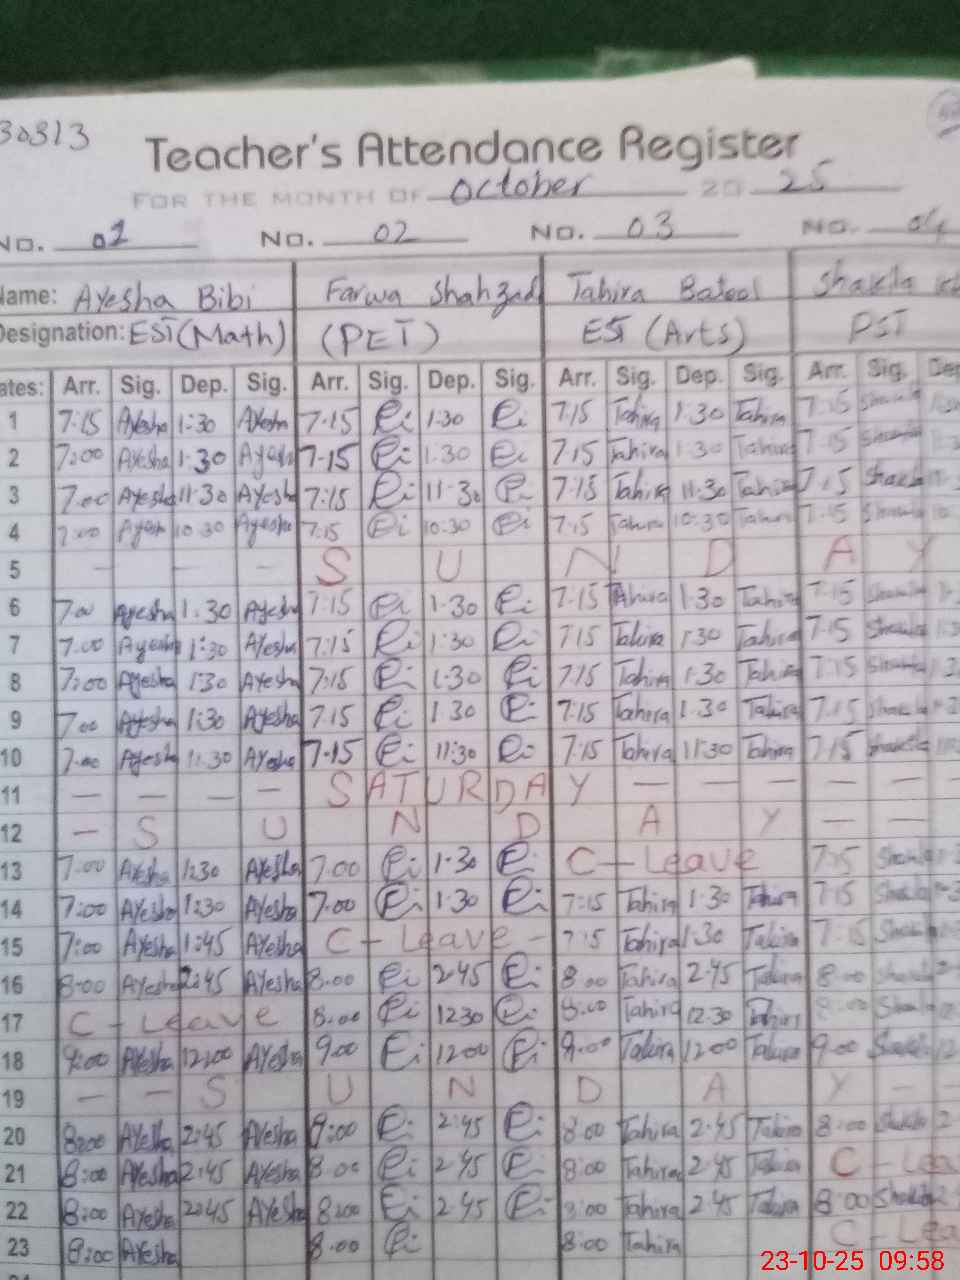 30313
Teacher's Attendance Register
FOR THE MONTH OF October 20 25
No. 01 No. 02 No. 03 No. 04
Name: Ayesha Bibi Farwa Shahzad Tahira Batool Shakila
Designation: EST (Math) (PET) EST (Arts) PST
ates: Arr. Sig. Dep. Sig. Arr. Sig. Dep. Sig. Arr. Sig. Dep. Sig. Arr. Sig. Dep
1 7:15 Ayesha 1:30 Ayesha 7:15 1:30 7:15 Tahira 1:30 Tahira 7:15 Shakila
2 7:00 Ayesha 1:30 Ayesha 7-15 1:30 7:15 Tahira 1:30 Tahira 7:15 Shakila
3 7:00 Ayesha 11:30 Ayesha 7:15 11:30 7:15 Tahira 11:30 Tahira 7:15 Shakila
4 7:00 Ayesha 10:30 Ayesha 7:15 10:30 7:15 Tahira 10:30 Tahira 7:15 Shakila
5 - - - - S U N D A Y
6 7:00 Ayesha 1:30 Ayesha 7:15 1:30 7:15 Tahira 1:30 Tahira 7:15 Shakila
7 7:00 Ayesha 1:30 Ayesha 7:15 1:30 7:15 Tahira 1:30 Tahira 7:15 Shakila
8 7:00 Ayesha 1:30 Ayesha 7:15 1:30 7:15 Tahira 1:30 Tahira 7:15 Shakila
9 7:00 Ayesha 1:30 Ayesha 7:15 1:30 7:15 Tahira 1:30 Tahira 7:15 Shakila
10 7:00 Ayesha 11:30 Ayesha 7-15 11:30 7:15 Tahira 11:30 Tahira 7:15 Shakila
11 - - - - S A T U R D A Y - - - - -
12 - S U N D A Y - -
13 7:00 Ayesha 1:30 Ayesha 7:00 1:30 C - Leave 7:15 Shakila
14 7:00 Ayesha 1:30 Ayesha 7:00 1:30 7:15 Tahira 1:30 Tahira 7:15 Shakila
15 7:00 Ayesha 1:45 Ayesha C - Leave - 7:15 Tahira 1:30 Tahira 7:15 Shakila
16 8:00 Ayesha 2:45 Ayesha 8:00 2:45 8:00 Tahira 2:45 Tahira 8:00 Shakila
17 C - Leave 8:00 12:30 8:00 Tahira 12:30 Tahira 8:00 Shakila
18 9:00 Ayesha 12:00 Ayesha 9:00 12:00 9:00 Tahira 12:00 Tahira 9:00 Shakila 12
19 - - S U N D A Y - -
20 8:00 Ayesha 2:45 Ayesha 9:00 2:45 8:00 Tahira 2:45 Tahira 8:00 Shakila 2
21 8:00 Ayesha 2:45 Ayesha 8:00 2:45 8:00 Tahira 2:45 Tahira C - Lea
22 8:00 Ayesha 2:45 Ayesha 8:00 2:45 8:00 Tahira 2:45 Tahira 8:00 Shakila 2
23 8:00 Ayesha 8:00 8:00 Tahira C - Lea
23-10-25 09:58